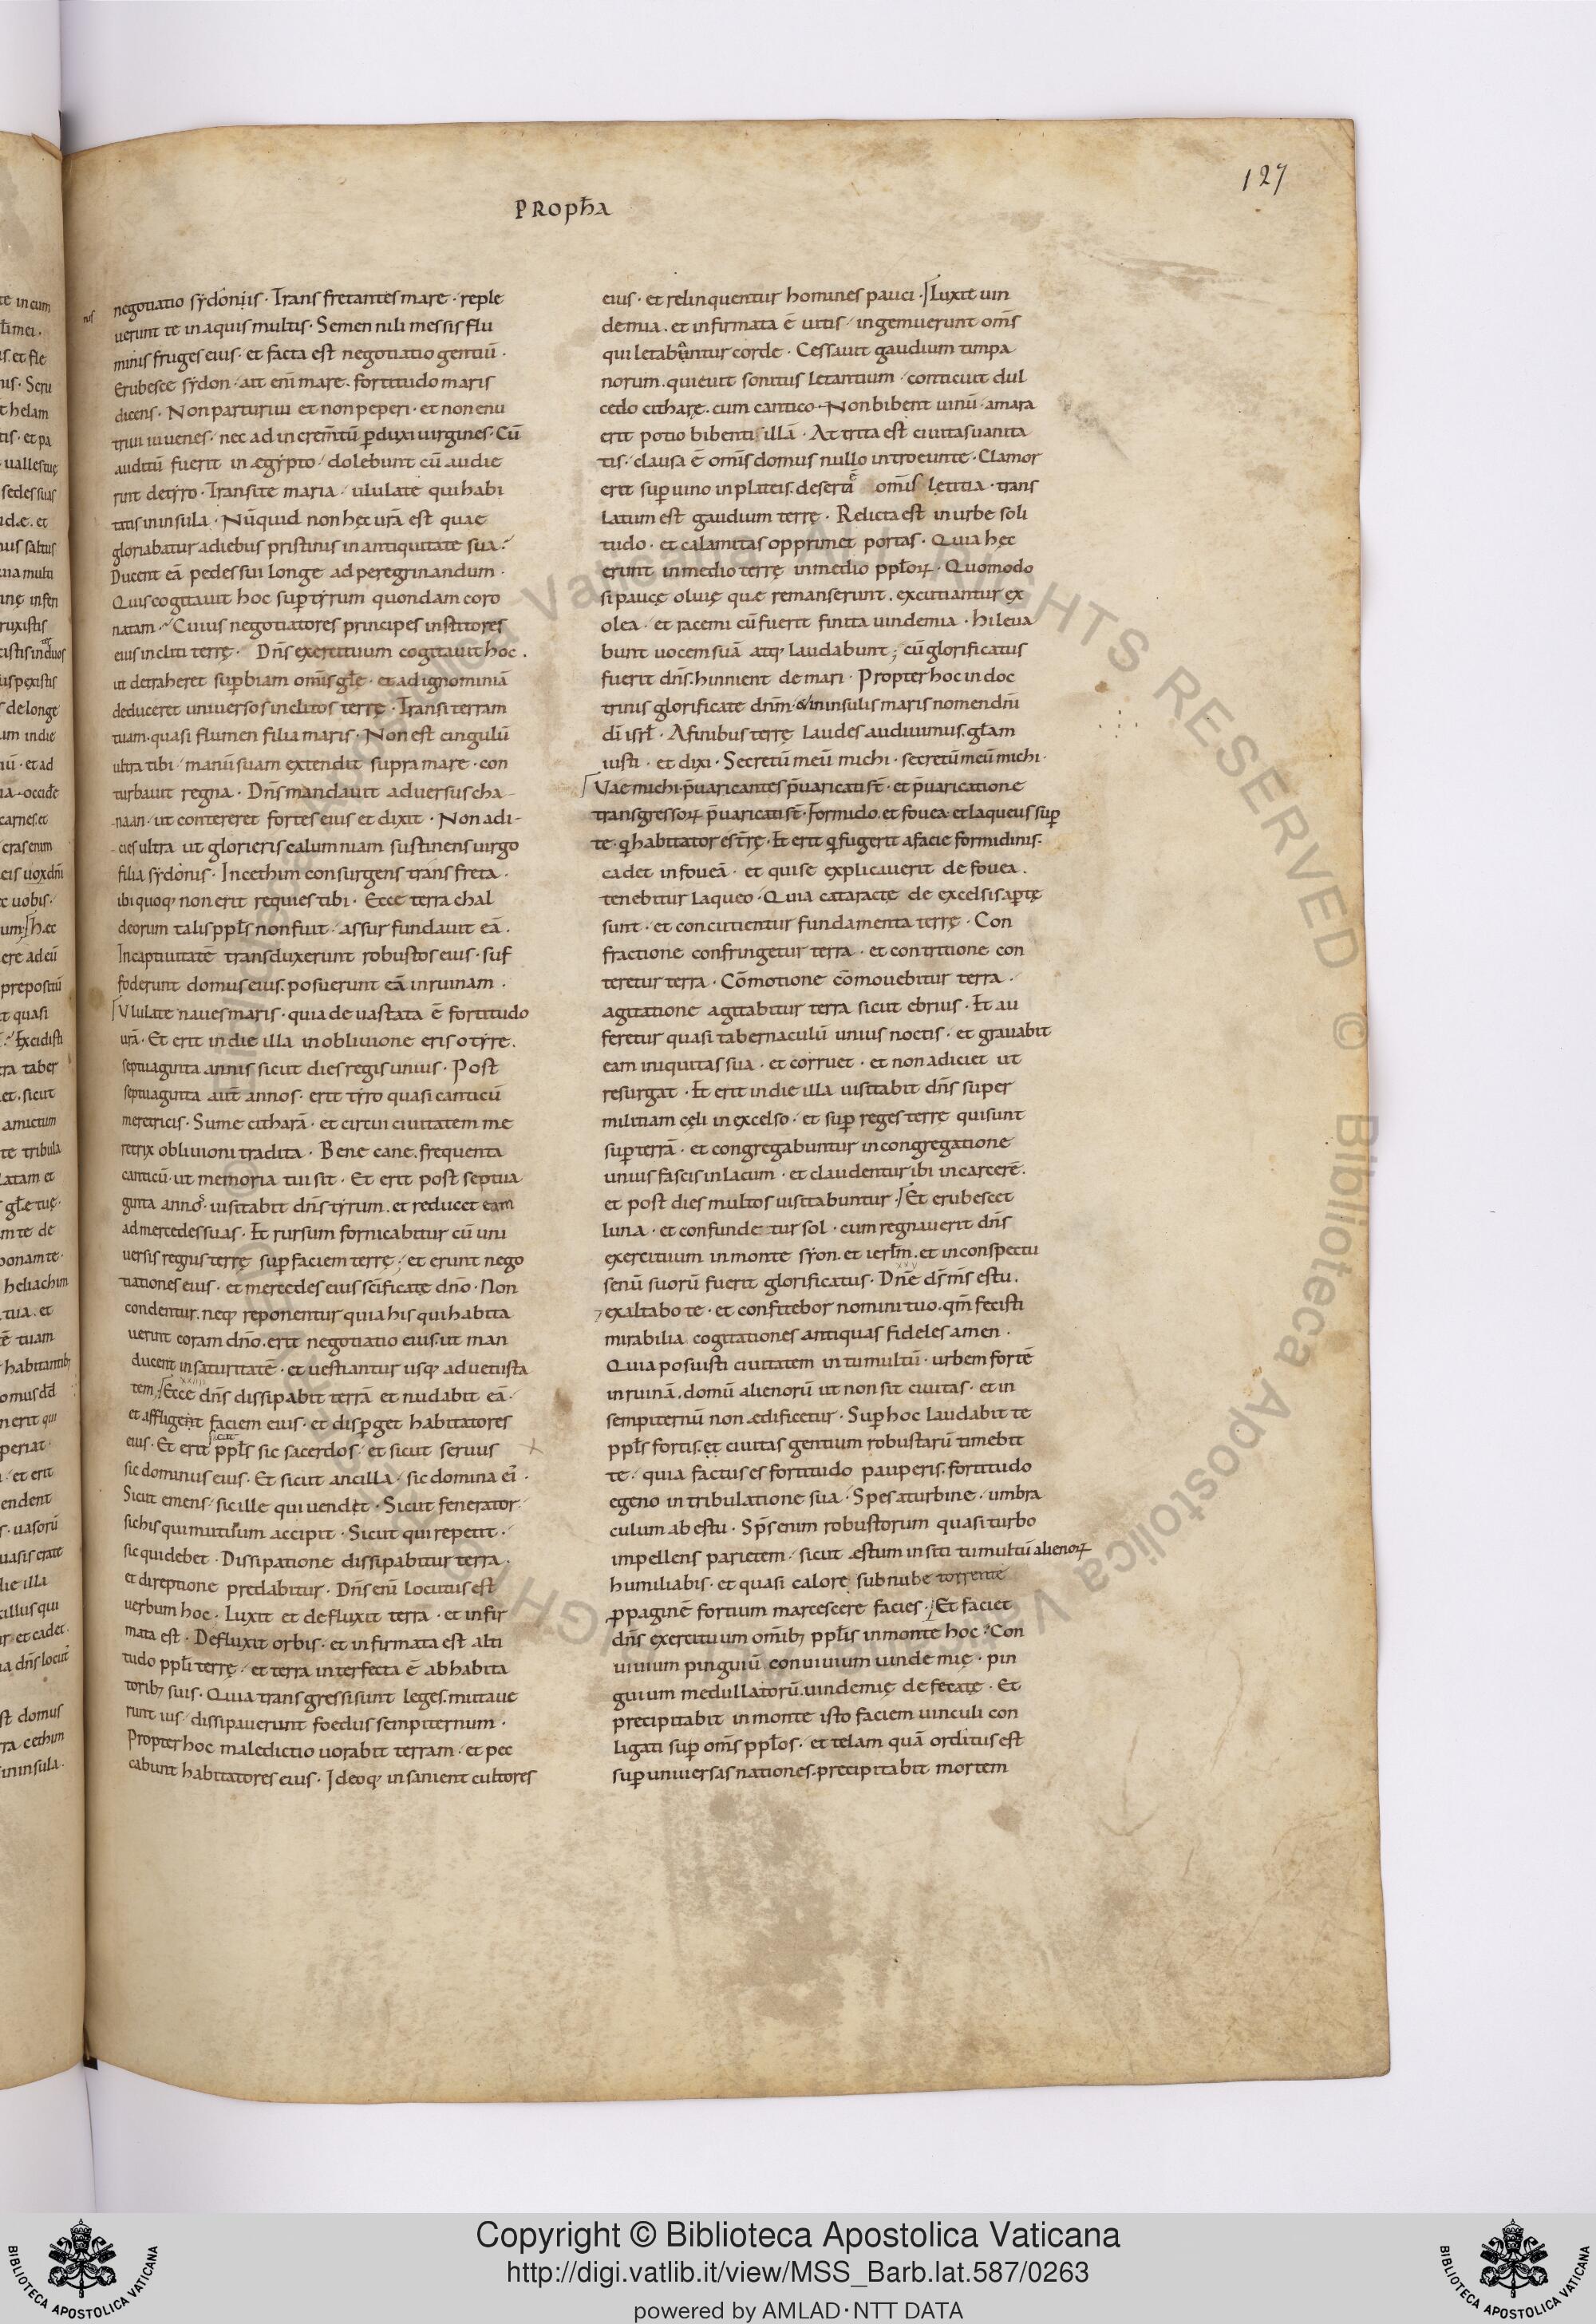 127
PROPħA
negotiatio sydoniis · Trans fretantes mare · reple
uerunt te in aquis multis · Semen nili messis flu
minis fruges eius · et facta est negotiatio gentiū ·
Erubesce sydon · ait enī mare · fortitudo maris
dicens · Non parturiui et non peperi · et non enu
triui iuuenes · nec ad incrēmtū ꝑduxi uirgines · Cū
auditū fuerit in ægypto · dolebunt cū audie
rint de tyro · Transite maria · ululate qui habi
tatis in insula · Nūquid non hęc urā est quae
gloriabatur a diebus pristinis in antiquitate sua ·
Ducent eā pedes sui longe ad peregrinandum ·
Quis cogitauit hoc suꝑ tyrum quondam coro
natam · Cuius negotiatores principes institores
eius incliti terrę · Dn̄s exercituum cogitauit hoc .
ut detraheret suꝑbiam om̄is głę · et ad ignominiā
deduceret uniuersos inclitos terrę · Transi terram
tuam · quasi flumen filia maris · Non est cingulū
ultra tibi · manū suam extendit supra mare · con
turbauit regna · Dn̄s mandauit aduersus cha-
naan · ut contereret fortes eius et dixit · Non adi-
cies ultra ut glorieris calumniam sustinens uirgo
filia sydonis · In cethim consurgens transfreta ·
ibi quoq; non erit requies tibi · Ecce terra chal
deorum talis ppłs non fuit · assur fundauit eā .
In captiuitatē transduxerunt robustos eius · suf
foderunt domus eius · posuerunt eā in ruinam .
Ululate naues maris · quia deuastata ē fortitudo
urā · Et erit in die illa in obliuione eris o tyre .
septuaginta annis sicut dies regis unius · Post
septuaginta aūt annos · erit tyro quasi canticū
meretricis · Sume citharā · et circui ciuitatem me
retrix obliuioni tradita · Bene cane · frequenta
canticū · ut memoria tui sit · Et erit post septua
ginta annos · uisitabit dn̄s tyrum · et reducet eam
ad mercedes suas · Et rursum fornicabitur cū uni
uersis regnis terrę suꝑ faciem terrę · et erunt nego
tiationes eius · et mercedes eius sc̄ificatę dn̄o · Non
condentur · neq; reponentur quia his qui habita
uerint coram dn̄o · erit negotiatio eius · ut man
ducent in saturitatē · et uestiantur usq; ad uetusta
tem · Ecce dn̄s dissipabit terrā et nudabit eā ·
et affligent faciem eius · et disꝑget habitatores
eius · Et erit sicut ppłs sic sacerdos · et sicut seruus
sic dominus eius · Et sicut ancilla · sic domina ei ·
Sicut emens · sic ille qui uendet · Sicut fenerator ·
sic his qui mutuum accipit · Sicut qui repetit ·
sic qui debet · Dissipatione dissipabitur terra .
et direptione predabitur · Dn̄s enī locutus est
uerbum hoc · Luxit et defluxit terra · et infir
mata est · Defluxit orbis · et infirmata est alti
tudo ppłi terrę · et terra interfecta ē ab habita
torib; suis · Quia transgressi sunt leges · mutaue
runt ius · dissipauerunt foedus sempiternum ·
Propter hoc maledictio uorabit terram · et pec
cabunt habitatores eius · Ideoq; insanient cultores
eius · et relinquentur homines pauci · Luxit uin
demia · et infirmata ē uitis · ingemuerunt om̄s
qui letabantur corde · Cessauit gaudium timpa
norum · quieuit sonitus letantium · conticuit dul
cedo citharę · cum cantico · Non bibent uinū · amara
erit potio bibentis illā · Attrita est ciuitas uanita
tis · clausa ē om̄is domus nullo introeunte · Clamor
erit suꝑ uino in plateis · deserta ē om̄is lętitia · trans
latum est gaudium terrę · Relicta est in urbe soli
tudo · et calamitas opprimet portas · Quia hęc
erunt in medio terrę in medio ppłoꝝ · Quomodo
si paucę oliuę que remanserunt · excutiantur ex
olea · et racemi cū fuerit finita uindemia · Hi leua
bunt uocem suā atq; laudabunt ; cū glorificatus
fuerit dn̄s · hinnient de mari · Propter hoc in doc
trinis glorificate dn̄m · in insulis maris nomen dn̄i
dī isrł · A finibus terrę laudes audiuimus · głam
iusti · et dixi · Secretū meū michi · secretū meū michi ·
Vae michi · p̄uaricantes p̄uaricati st̄ · et p̄uaricatione
transgressoꝝ p̄uaricati st̄ · Formido · et fouea · et laqueus suꝑ
te · q̄ habitator es tr̄ę · Et erit q̄ fugerit a facie formidinis ·
cadet in foueā · et qui se explicauerit de fouea .
tenebitur laqueo · Quia cataractę de excelsis aꝑtę
sunt · et concutientur fundamenta terrę · Con
fractione confringetur terra · et contritione con
teretur terra · Cōmotione cōmouebitur terra ·
agitatione agitabitur terra sicut ebrius · Et au
feretur quasi tabernaculū unius noctis · et grauabit
eam iniquitas sua · et corruet · et non adiciet ut
resurgat · Et erit in die illa uisitabit dn̄s super
militiam cęli in excelso · et suꝑ reges terrę qui sunt
suꝑ terrā · et congregabuntur in congregatione
unius fascis in lacum · et claudentur ibi in carcerē .
et post dies multos uisitabuntur · Et erubescet
luna · et confundetur sol · cum regnauerit dn̄s
exercituum in monte syon · et ierłm · et in conspectu
senū suorū fuerit glorificatus · Dn̄e ds̄ ms̄ es tu .
exaltabo te · et confitebor nomini tuo · qm̄ fecisti
mirabilia cogitationes antiquas fideles amen ·
Quia posuisti ciuitatem in tumultū · urbem fortē
in ruinā · domū alienorū ut non sit ciuitas · et in
sempiternū non ædificetur · Suꝑ hoc laudabit te
ppłs fortis · et ciuitas gentium robustarū timebit
te · quia factus es fortitudo pauperis · fortitudo
egeno in tribulatione sua · Spes a turbine · umbra
culum ab estu · Sps̄ enim robustorum quasi turbo
impellens parietem · sicut æstum in siti tumultū alienoꝝ
humiliabis · et quasi calore sub nube torrente
ꝓpaginē fortium marcescere facies · Et faciet
dn̄s exercituum om̄ib; ppłis in monte hoc · Con
uiuium pinguiū conuiuium uindemię · pin
guium medullatorū · uindemię defecatę · Et
precipitabit in monte isto faciem uinculi con
ligati suꝑ om̄s ppłos · et telam quā orditus est
suꝑ uniuersas nationes · precipitabit mortem
Copyright © Biblioteca Apostolica Vaticana
http://digi.vatlib.it/view/MSS_Barb.lat.587/0263
powered by AMLAD·NTT DATA